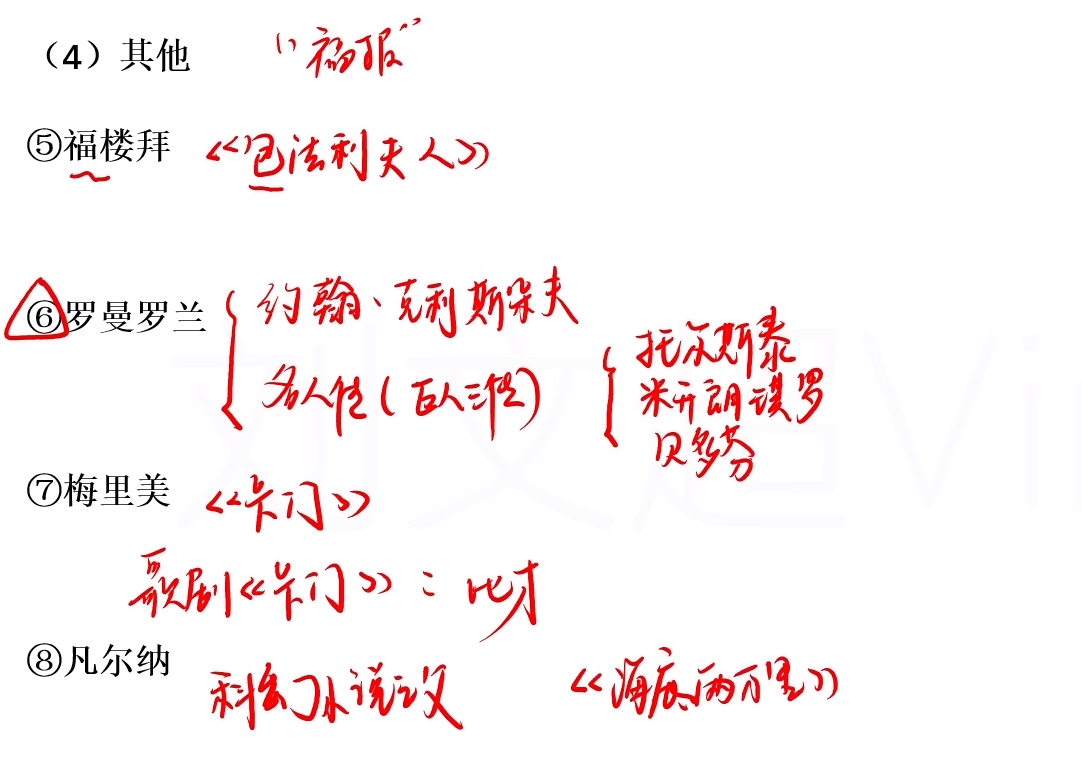 （4）其他 “福报”
⑤福楼拜 《包法利夫人》
⑥罗曼罗兰 { 约翰、克利斯朵夫
名人传(巨人三传) { 托尔斯泰
米开朗琪罗
贝多芬
⑦梅里美 《卡门》
歌剧《卡门》：比才
⑧凡尔纳 科幻小说之父 《海底两万里》